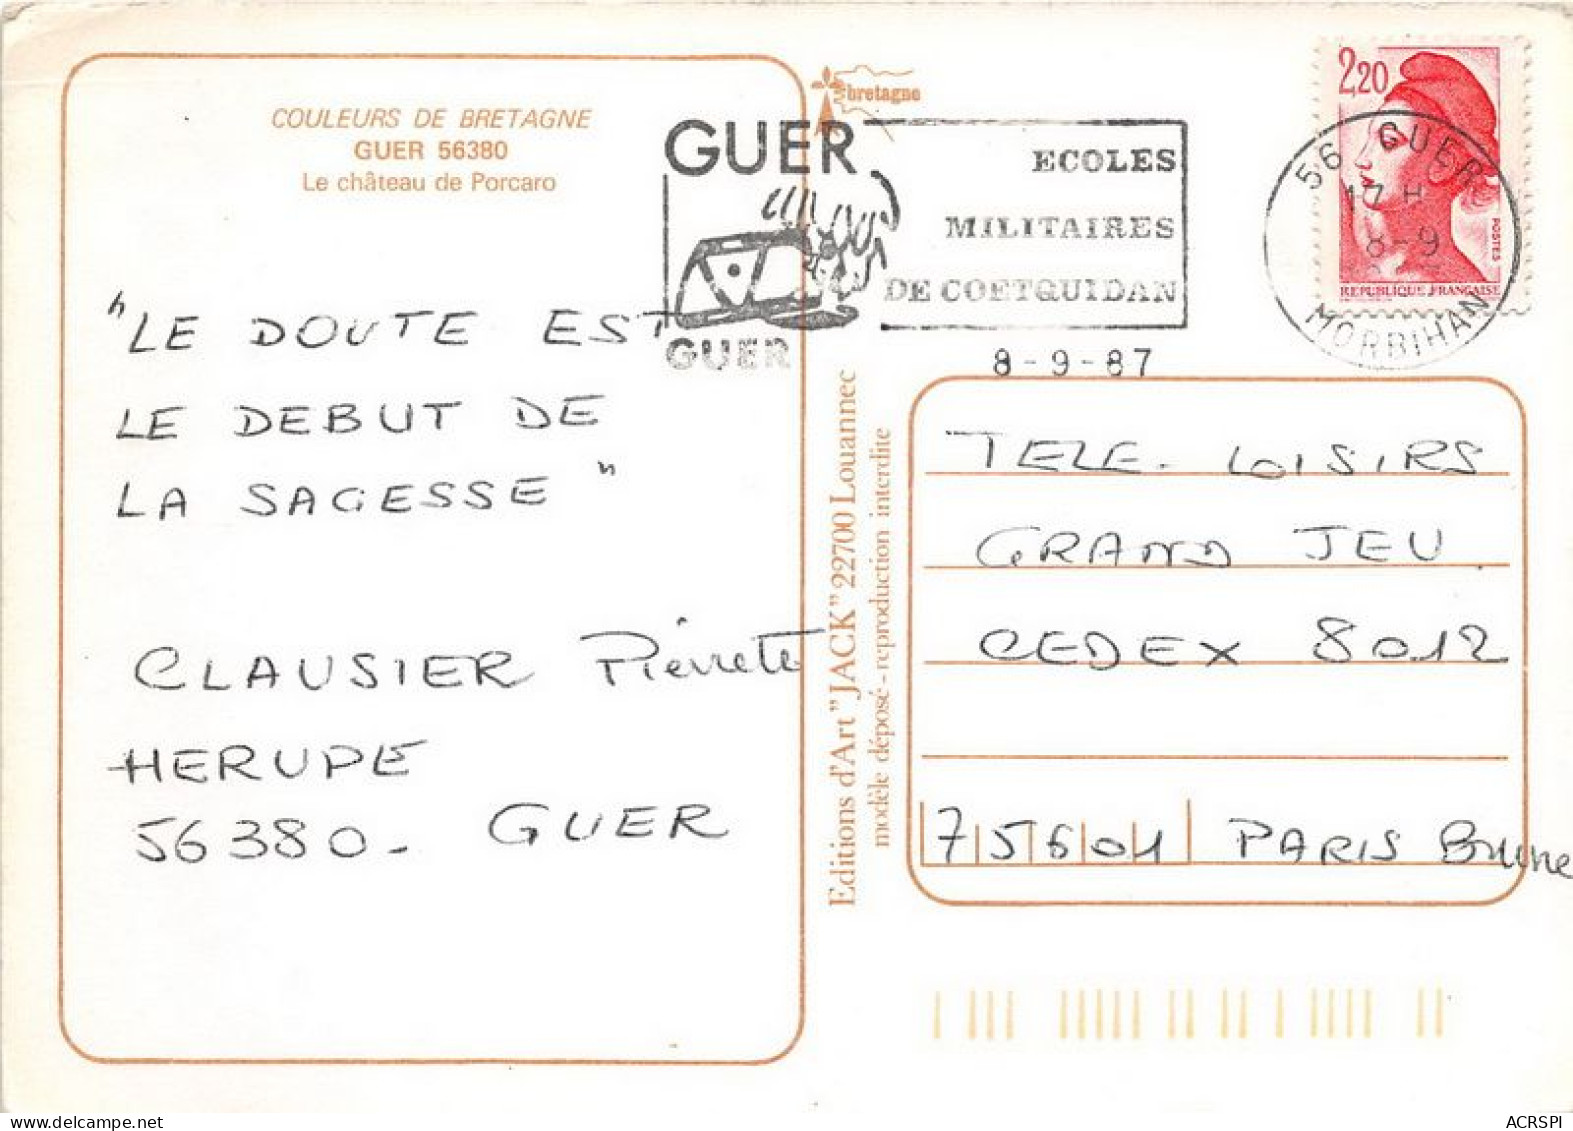 COULEURS DE BRETAGNE
GUER 56380
Le château de Porcaro
"LE DOUTE EST
LE DEBUT DE
LA SAGESSE"
CLAUSIER Pierrette
HERUPE
56380. GUER
bretagne
GUER
GUER
ECOLES
MILITAIRES
DE COETQUIDAN
8-9-87
2,20
POSTES
REPUBLIQUE FRANÇAISE
56 GUER
17 H
8-9
MORBIHAN
Editions d'Art "JACK" 22700 Louannec
modèle déposé-reproduction interdite
TELE. LOISIRS
GRAND JEU.
CEDEX 8012
75601 PARIS Brune
delcampe.net
ACRSPI